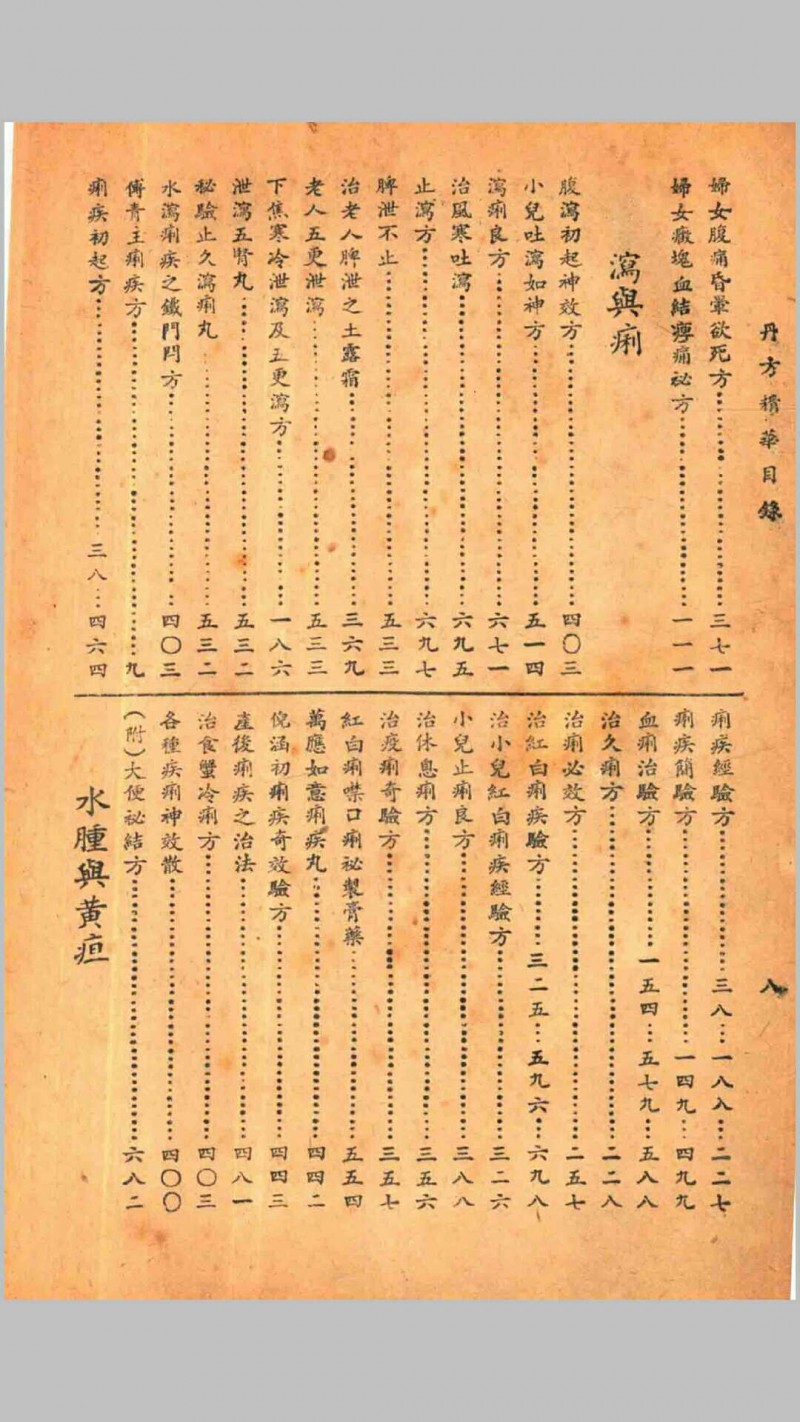 丹方精華目錄
八
婦女腹痛昏暈欲死方……三七一
婦女癥塊血結痹痛祕方……一一一
瀉與痢
腹瀉初起神效方……四〇三
小兒吐瀉如神方……五一四
瀉痢良方……六七一
治風寒吐瀉……六九五
止瀉方……六九七
脾泄不止……五三三
治老人脾泄之土露霜……三六九
老人五更泄瀉……五三三
下焦寒冷泄瀉及五更瀉方……一八六
泄瀉五腎丸……五三二
秘驗止久瀉痢丸……五三二
水瀉痢疾之鐵門閂方……四〇三
傅青主痢疾方……九
痢疾初起方……三八…四六四
痢疾經驗方……三八…一八八…二二七
痢疾簡驗方……一四九…四九九
血痢治驗方……一五四…五七九…五八八
治久痢方……二二八
治痢必效方……二五七
治紅白痢疾驗方……三二五…五九六…六九八
治小兒紅白痢疾經驗方……三二六
小兒止痢良方……三八八
治休息痢方……三五六
治疫痢奇驗方……三五七
紅白痢噤口痢祕製膏藥……五五四
萬應如意痢疾丸……四四二
倪涵初痢疾奇效驗方……四四三
產後痢疾之治法……四八一
治食蟹冷痢方……四〇三
各種疾痢神效散……四〇〇
(附)大便祕結方……六八二
水腫與黃疸